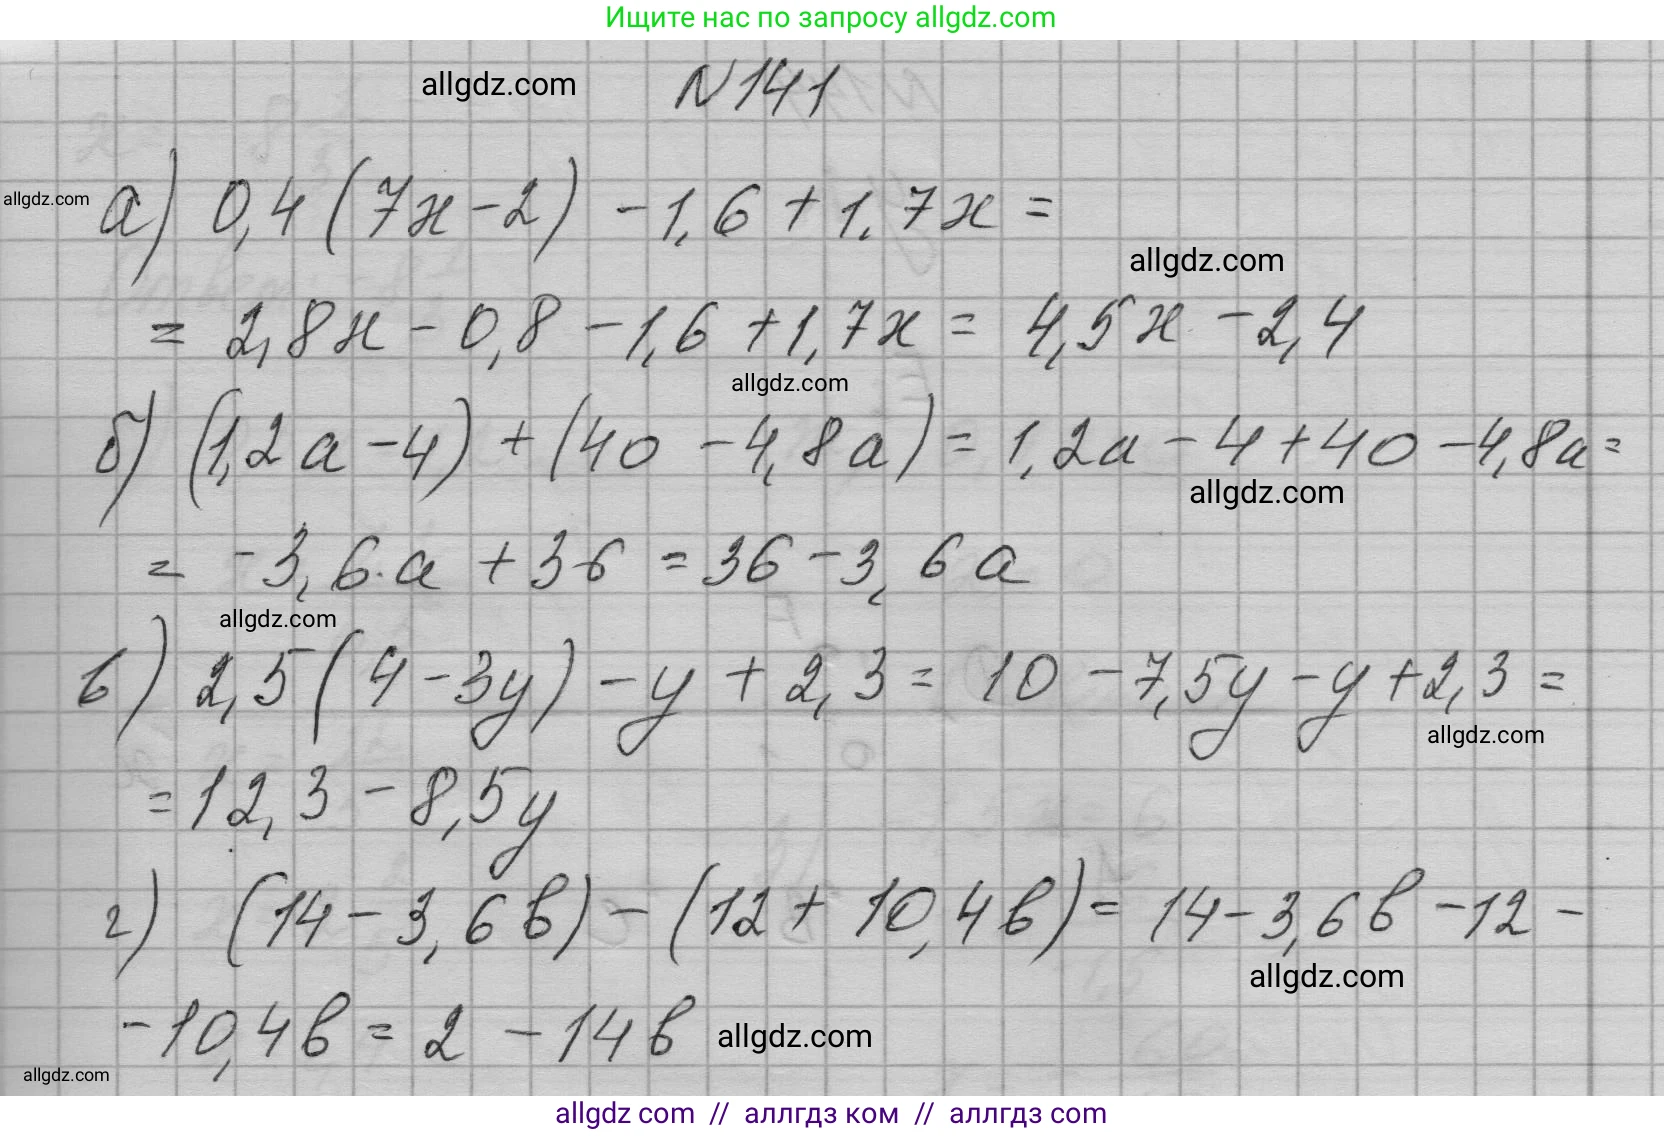 Ищите нас по запросу allgdz.com
allgdz.com
N141
allgdz.com
а) 0,4(7x-2) -1,6+1,7x=
allgdz.com
= 2,8x-0,8-1,6+1,7x= 4,5x-2,4
allgdz.com
б) (1,2a-4)+(40-4,8a)=1,2a-4+40-4,8a=
allgdz.com
= -3,6a+36=36-3,6a
allgdz.com
в) 2,5(4-3y)-y+2,3=10-7,5y-y+2,3=
allgdz.com
=12,3-8,5y
г) (14-3,6b)-(12+10,4b)=14-3,6b-12-
allgdz.com
-10,4b=2-14b
allgdz.com
allgdz.com
allgdz com // аллгдз ком // аллгдз com